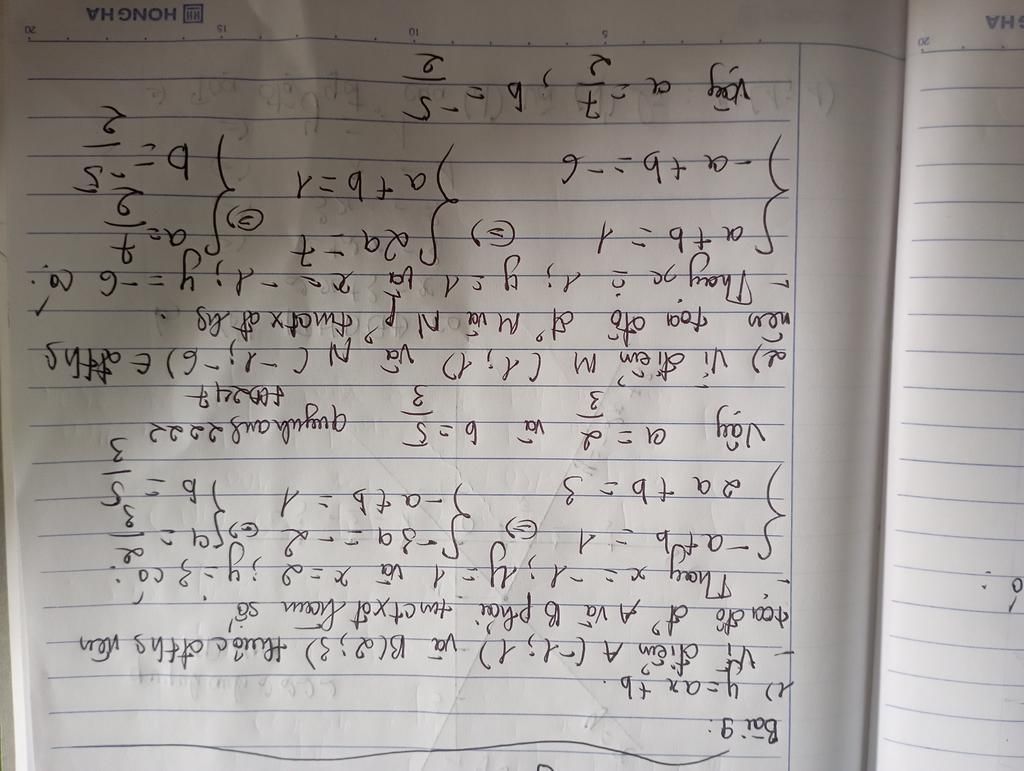 Bài 9:
1) y = ax + b.
- Vì điểm A (-1; 1) và B(2; 3) thuộc đths nên
toạ độ đ' A và B phải tmctxđ hàm số
- Thay x = -1; y = 1 và x = 2; y = 3 có:
{ -a + b = 1 (=) { -3a = -2 (=) { a = 2/3
{ 2a + b = 3 { -a + b = 1 { b = 5/3
Vậy a = 2/3 và b = 5/3 quynhang2222
2) Vì điểm M (1; 1) và N (-1; -6) ∈ đths
nên toạ độ đ' M và N p' tmctxđ hs
- Thay x = 1; y = 1 và x = -1; y = -6 có:
{ a + b = 1 (=) { 2a = 7 (=) { a = 7/2
{ -a + b = -6 { a + b = 1 { b = -5/2
Vậy a = 7/2 ; b = -5/2
5 10 15 20
HONG HA
20
HA